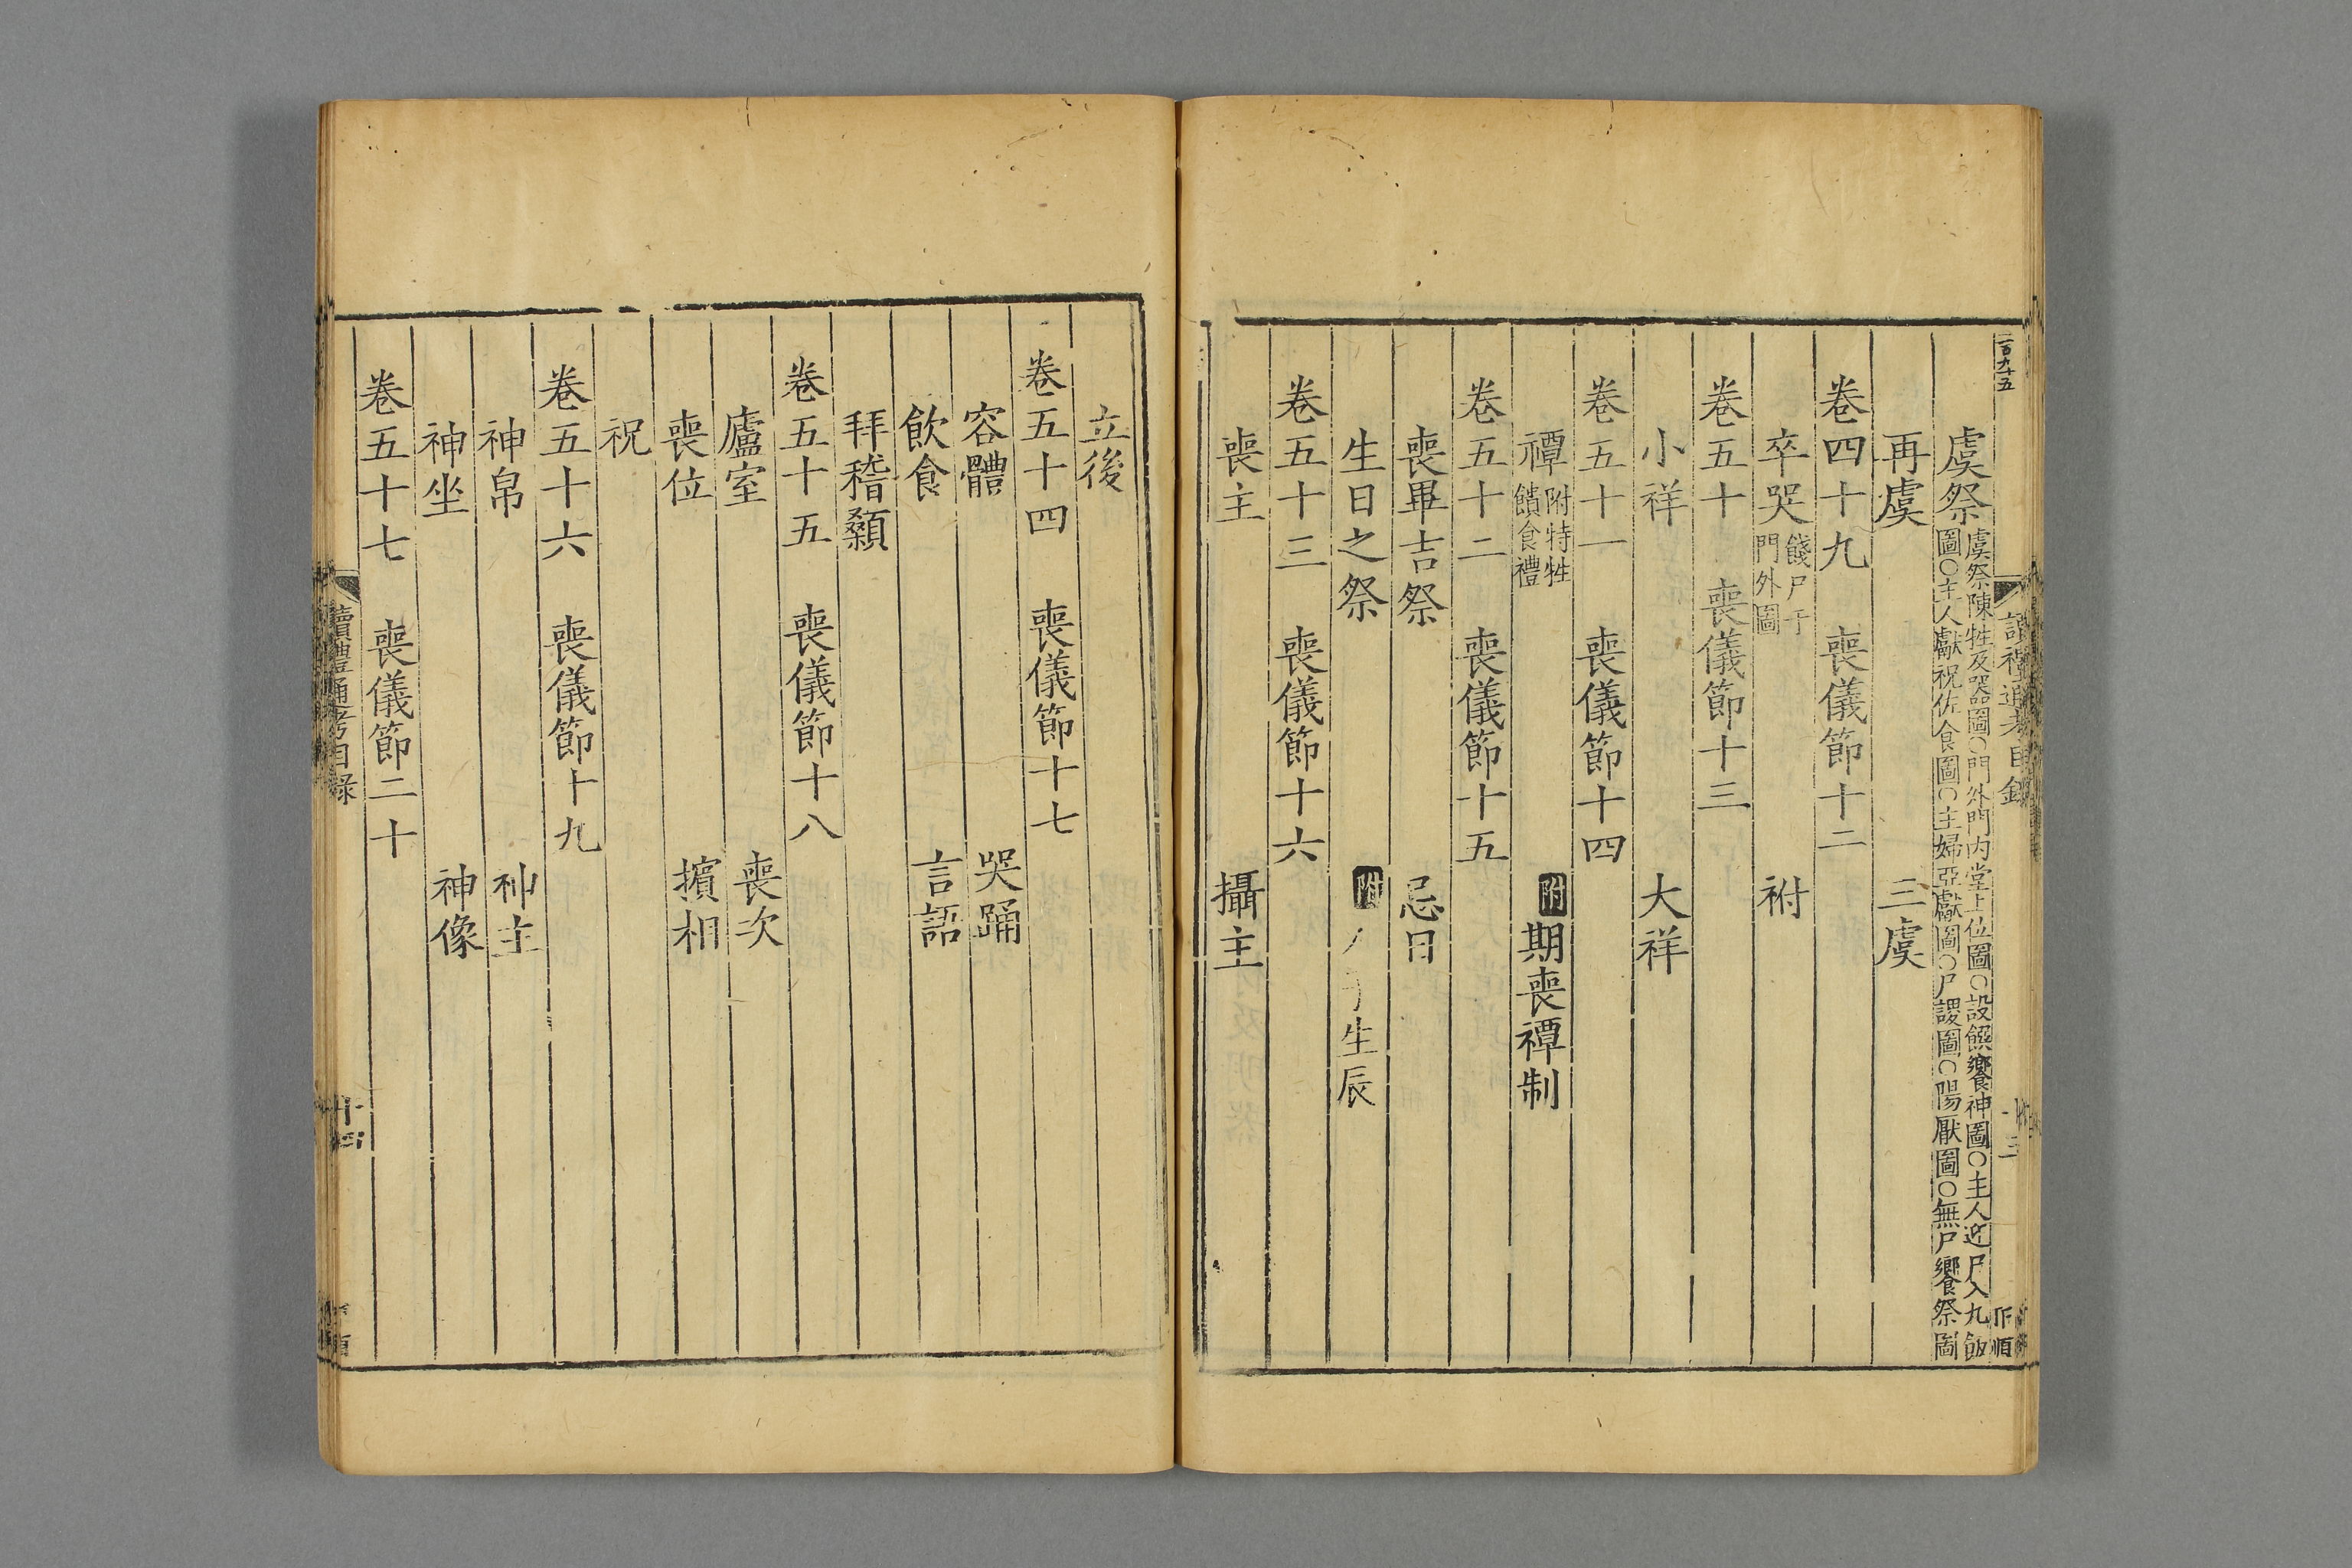 一百九十五
讀禮通考目錄
虞祭 虞祭陳牲及器圖○門外門內堂上位圖○設饌饗神圖○主人迎尸入九飯
圖○主人獻祝佐食圖○主婦亞獻圖○尸謖圖○陽厭圖○無尸饗祭圖
再虞 三虞
卷四十九 喪儀節十二
卒哭 餞尸于門外圖 祔
卷五十 喪儀節十三
小祥 大祥
卷五十一 喪儀節十四
禫 附特牲饋食禮 附 期喪禫制
卷五十二 喪儀節十五
喪畢吉祭 忌日
生日之祭 附 生辰
卷五十三 喪儀節十六
喪主 攝主
立後
卷五十四 喪儀節十七
容體 哭踊
飲食 言語
拜稽顙
卷五十五 喪儀節十八
廬室 喪次
喪位 擯相
祝
卷五十六 喪儀節十九
神帛 神主
神坐 神像
卷五十七 喪儀節二十
讀禮通考目錄
十四